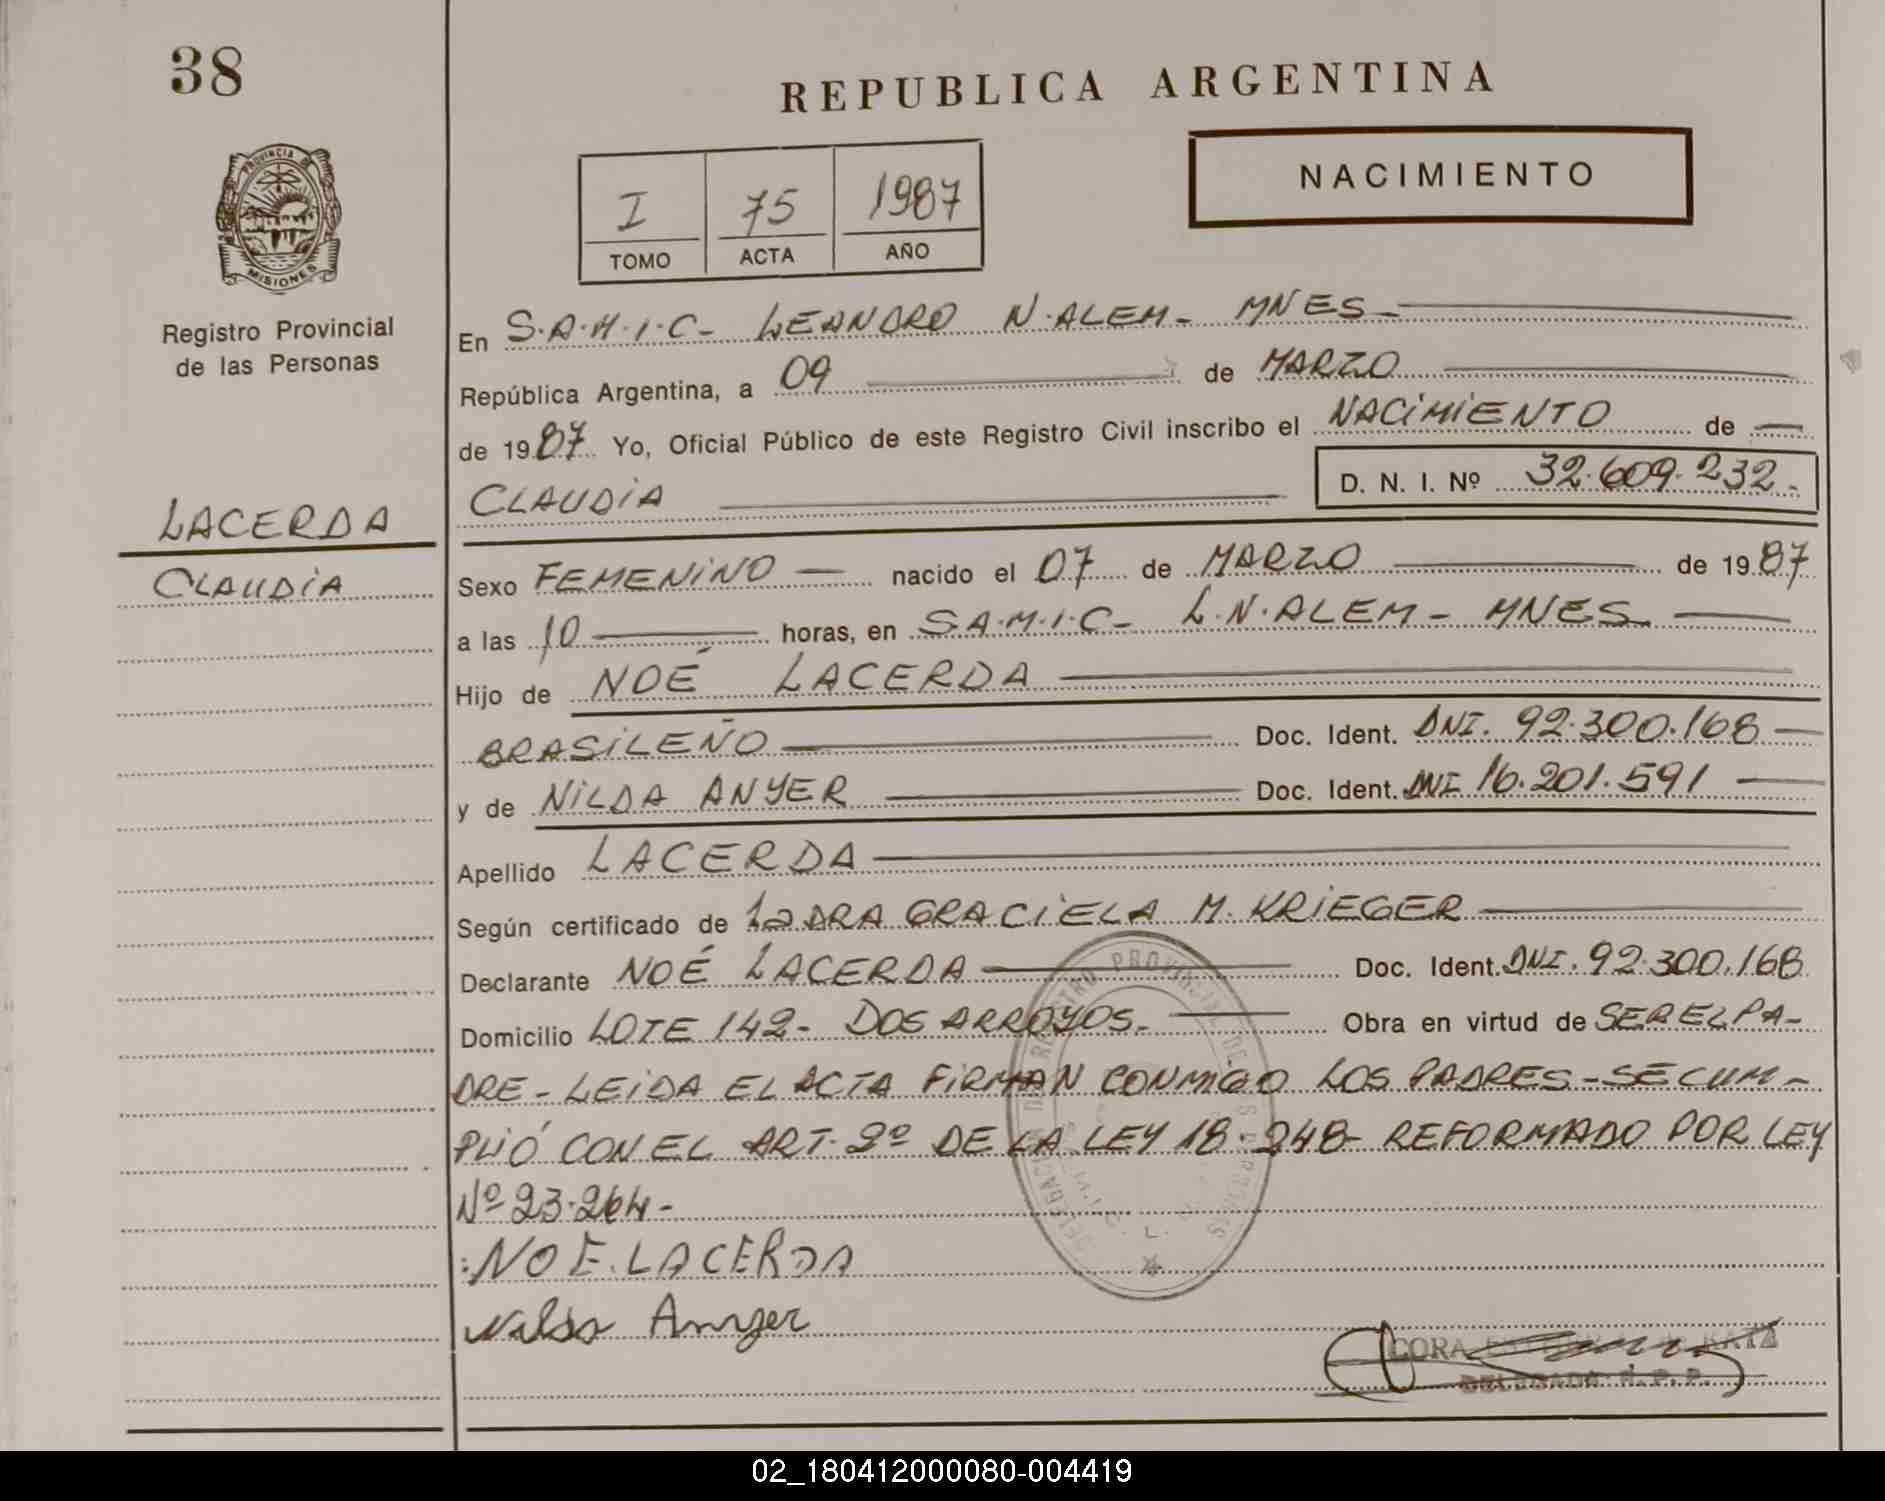 38
REPUBLICA ARGENTINA
NACIMIENTO
PROVINCIA DE
MISIONES
I 75 1987
TOMO ACTA AÑO
Registro Provincial
de las Personas
En S.A.M.I.C- LEANDRO N. ALEM- MNES-
República Argentina, a 09 de MARZO
de 1987 Yo, Oficial Público de este Registro Civil inscribo el NACIMIENTO de
CLAUDIA D. N. I. Nº 32.609.232.-
LACERDA
CLAUDIA
Sexo FEMENINO nacido el 07 de MARZO de 1987
a las 10 horas, en S.A.M.I.C- L.N. ALEM- MNES.
Hijo de NOÉ LACERDA
BRASILEÑO Doc. Ident. DNI. 92.300.168
y de NILDA ANYER Doc. Ident. DNI 16.201.591
Apellido LACERDA
Según certificado de La DRA GRACIELA M. KRIEGER
Declarante NOÉ LACERDA Doc. Ident. DNI. 92.300.168
Domicilio LOTE 142- DOS ARROYOS.- Obra en virtud de SER EL PA-
DRE- LEIDA EL ACTA FIRMAN CONMIGO LOS PADRES-SE CUM-
PLIÓ CON EL ART. 2º DE LA LEY 18.248- REFORMADO POR LEY
Nº 23.264-
NOE LACERDA
Nilda Anyer
REGISTRO PROVINCIAL DE LAS PERSONAS
CORA
DELEGADA R. P. P.
02_180412000080-004419